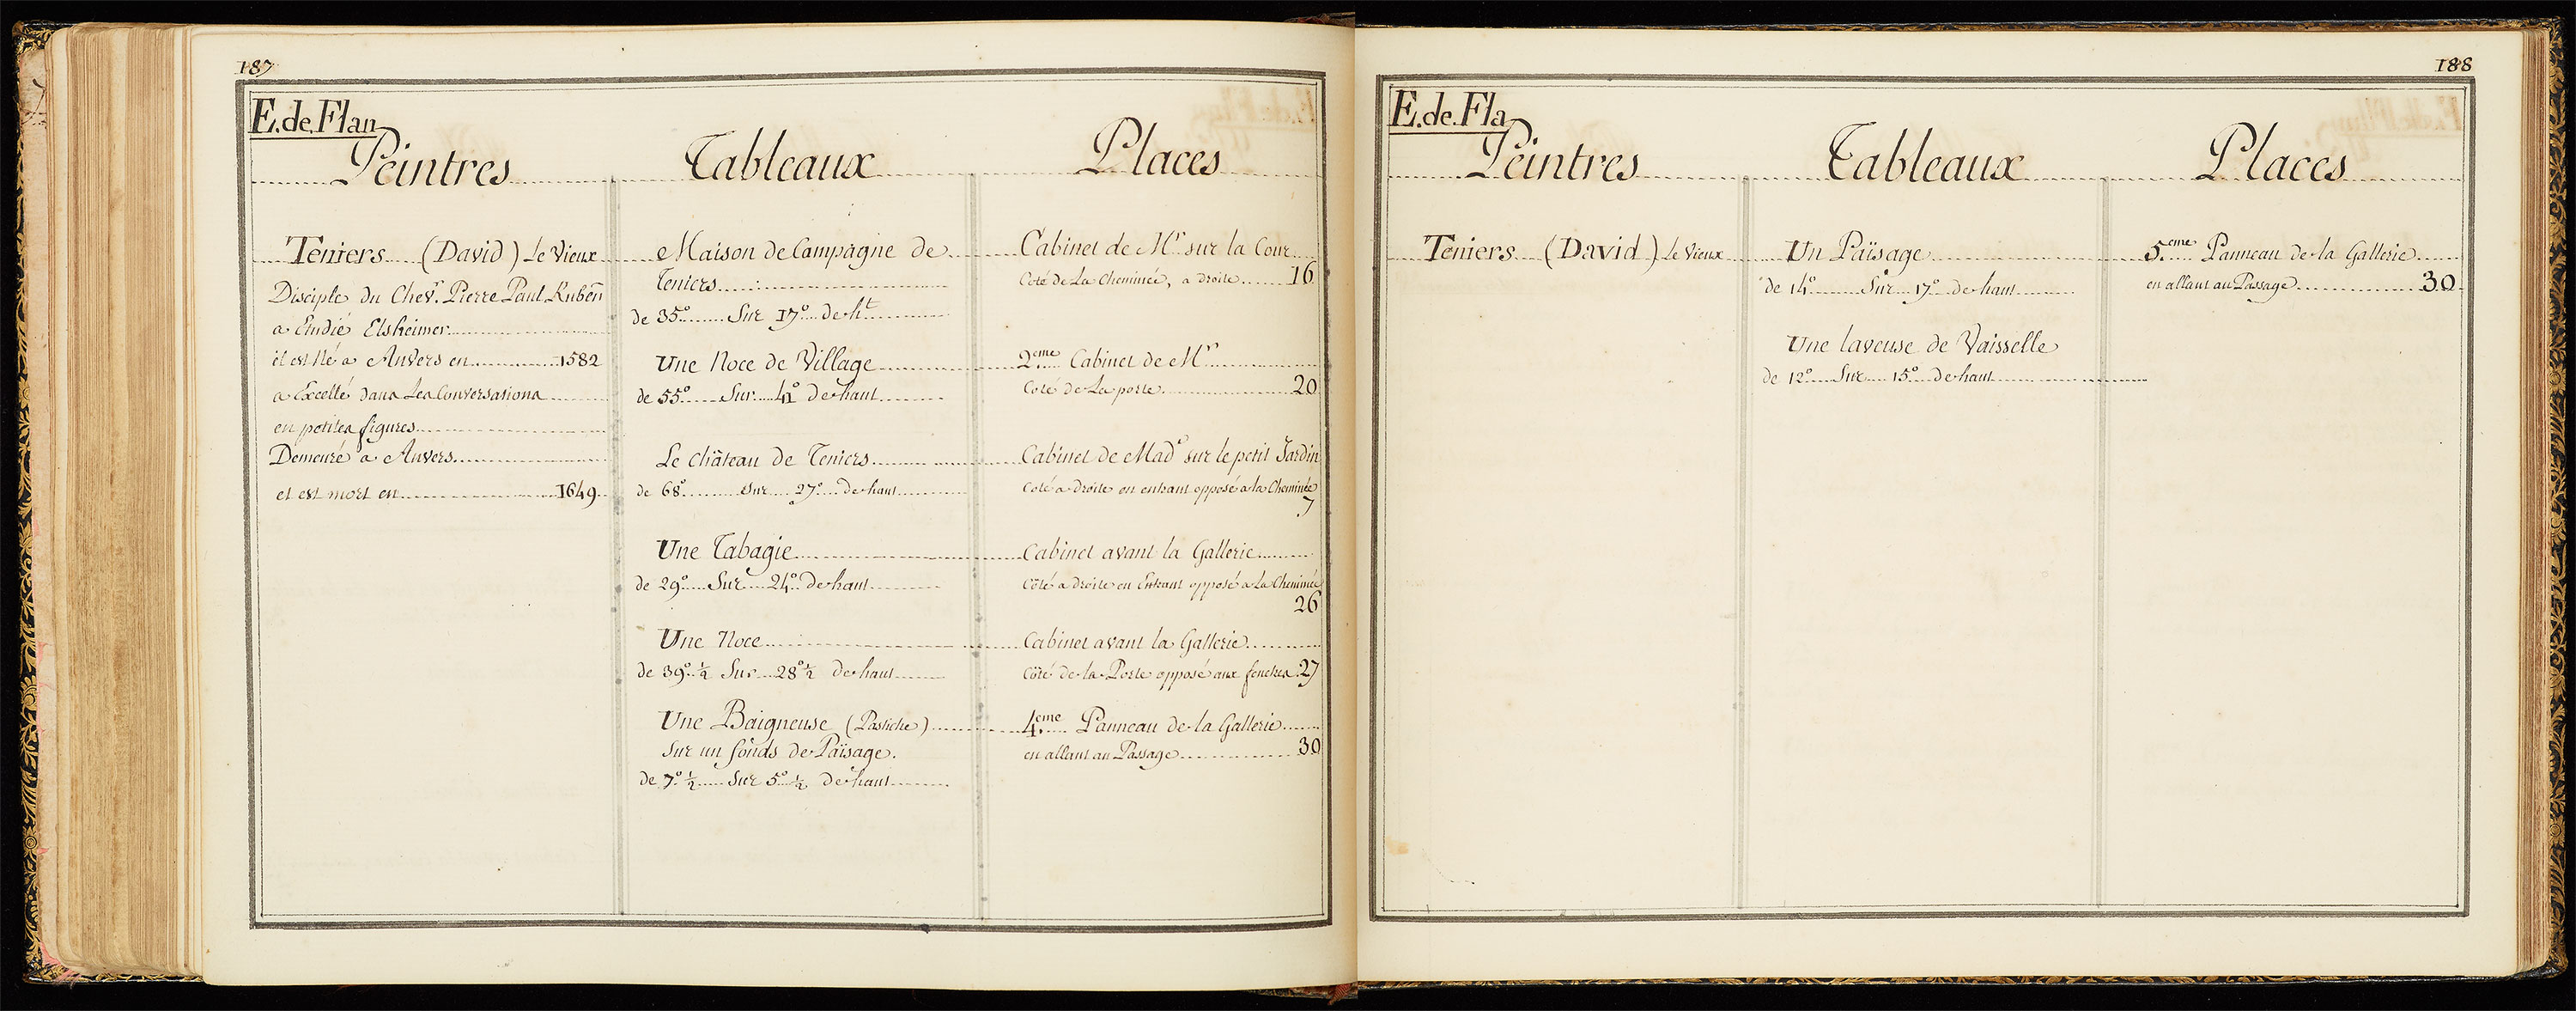 187
E. de. Flan
Peintres Tableaux Places
Teniers (David) Le Vieux
Disciple du Chev.r Pierre Paul Rubeñ
a Etudié Elsheimer
il est Né a Anvers en 1582
a Excellé dans Les Conversations
en petites figures
Demeuré a Anvers
et est mort en 1649
Maison de Campagne de
Teniers
de 35° Sur 17° de h.t
Cabinet de M.r sur la Cour
Coté de La Cheminée, a droite 16
Une Noce de Village
de 55° Sur 41° de haut
2.eme Cabinet de M.r
Coté de La porte 20
Le château de Teniers
de 68° sur 27° de haut
Cabinet de Mad.e sur le petit Jardin
Coté a Droite en entrant opposé a la Cheminée
7
Une Tabagie
de 29° Sur 24° de haut
Cabinet avant la Gallerie
Côté a Droite en Entrant opposé a La Cheminée
26
Une Noce
de 39° ½ Sur 28° ½ de haut
Cabinet avant la Gallerie
Côté de la Porte opposé aux fenetres 27
Une Baigneuse (Pastiche)
Sur un fonds de Païsage.
de 7° ½ Sur 5° ½ de haut
4.eme Panneau de la Gallerie
en allant au Passage 30
188
E. de. Fla
Peintres Tableaux Places
Teniers (David) Le Vieux
Un Païsage
de 14° Sur 17° de haut
5.eme Panneau de la Gallerie
en allant au Passage 30
Une laveuse de Vaisselle
de 12° Sur 15° de haut